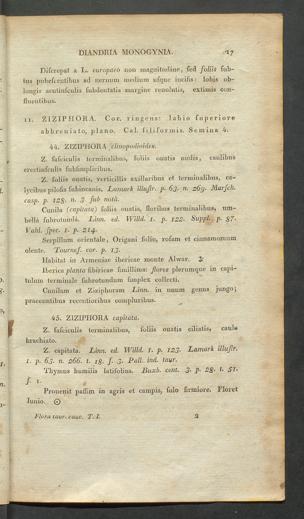 DIANDRIA MONOGYNIA. 17
Discrepat a L. europaeo non magnitudine, sed foliis sub-
tus pubescentibus ad nervum medium usque incisis: lobis ob-
longis acutiusculis subdentatis margine revolutis, extimis con-
fluentibus.
11. ZIZIPHORA. Cor. ringens: labio superiore
abbreviato, plano. Cal. filiformis. Semina 4.
44. ZIZIPHORA clinopodioides.
Z. fasciculis terminalibus, foliis ovatis nudis, caulibus
erectiusculis subsimplicibus.
Z. foliis ovatis, verticillis axillaribus et terminalibus, ca-
lycibus pilosis subincanis. Lamark illustr. p. 63. n. 269. Marsch.
casp. p. 128. n. 3 sub notâ.
Cunila (capitata) foliis ovatis, floribus terminalibus, um-
bella subrotunda. Linn. ed. Willd. 1. p. 122. Suppl. p. 87.
Vahl. spec. 1. p. 214.
Serpillum orientale, Origani folio, rosam et cinnamomum
olente. Tournef. cor. p. 13.
Habitat in Armeniae ibericae monte Alwar. ♃
Iberica planta sibiricae simillima: flores plerumque in capi-
tulum terminale subrotundum simplex collecti.
Cunilam et Ziziphoram Linn. in unum genus jungo;
praeeuntibus recentioribus compluribus.
45. ZIZIPHORA capitata.
Z. fasciculis terminalibus, foliis ovatis ciliatis, caule
brachiato.
Z. capitata. Linn. ed. Willd. 1. p. 123. Lamark illustr.
1. p. 63. n. 266. t. 18. f. 3. Pall. ind. taur.
Thymus humilis latifolius. Buxb. cent. 3. p. 28. t. 51.
f. 1.
Provenit passim in agris et campis, solo firmiore. Floret
Iunio. ☉
Flora taur. cauc. T. I. 2